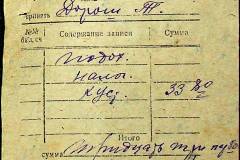 Принять Дорош Т.
№№ Содержание записи Сумма
подох.
нало.
куст.
33 80
Итого
сумма Тридцать три руб